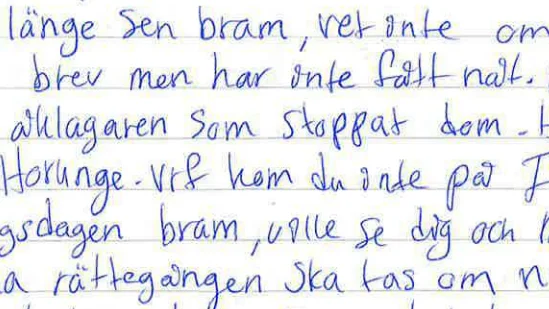 länge sen bram, vet inte om
brev men har inte fått nåt.
åklagaren som stoppat dom.
Horunge. Vrf kom du inte på
gsdagen bram, ville se dig och
a rättegången ska tas om n